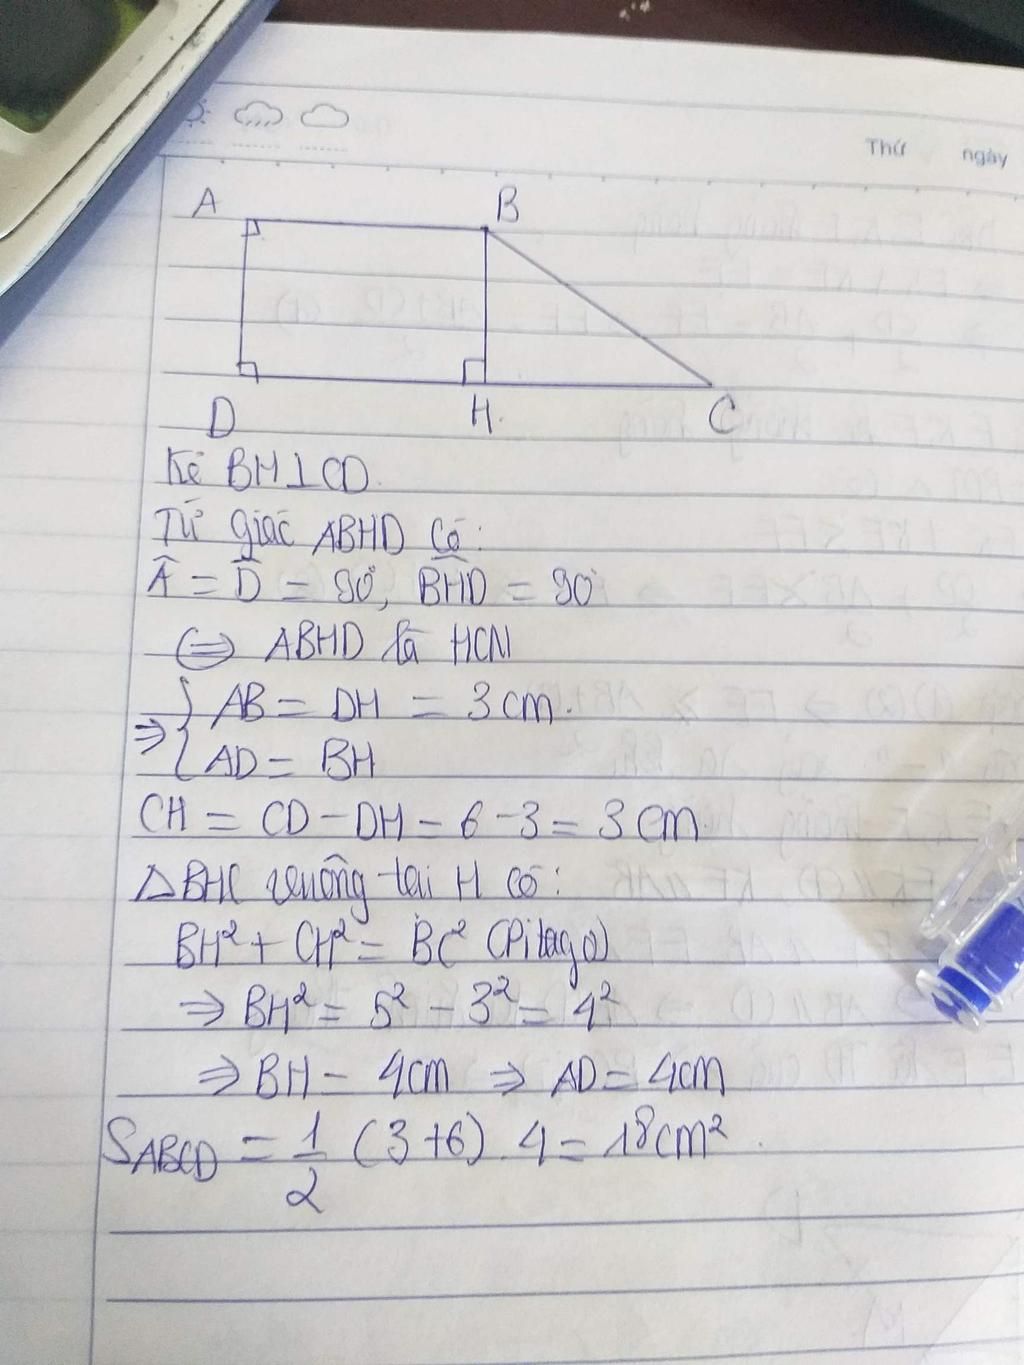 Thứ ngày
A B
D H C
Kẻ BH ⊥ CD.
Tứ giác ABHD có:
Â = D̂ = 90°, B̂HD = 90°
(⇒) ABHD là HCN
⇒ { AB = DH = 3 cm.
AD = BH
CH = CD - DH = 6 - 3 = 3 cm
△BHC vuông tại H có:
BH² + CH² = BC² (Pitago)
⇒ BH² = 5² - 3² = 4²
⇒ BH = 4cm ⇒ AD = 4cm
S_ABCD = 1/2 (3+6). 4 = 18cm².